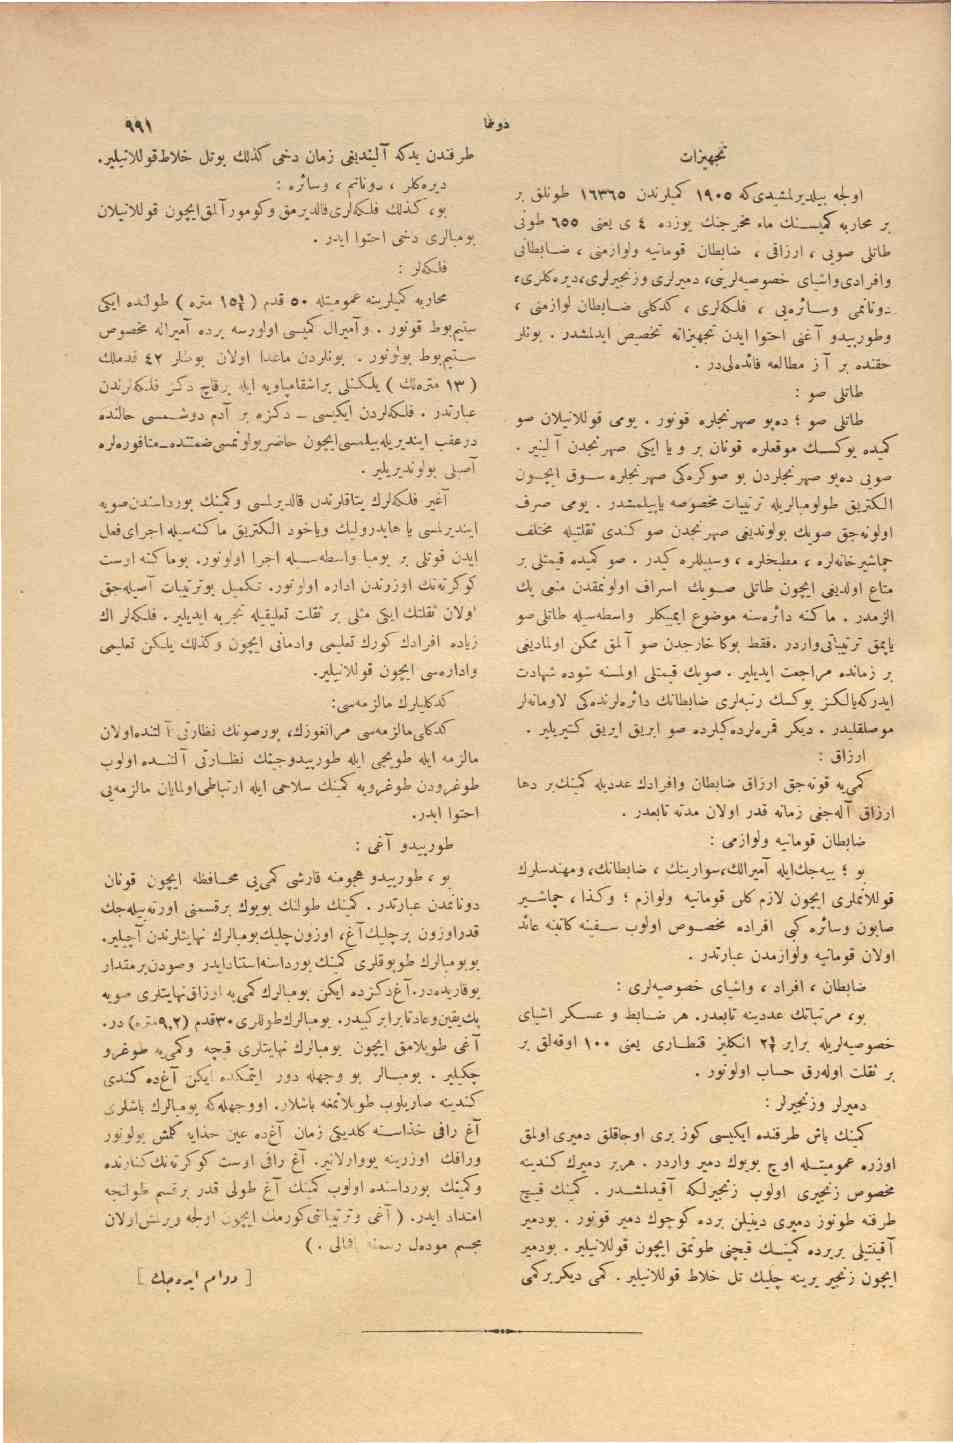 دوننما
٩٩١
تجهیزات
اولجه بیلدیرلمشیدی‌که ١٩٠٥ کمیلرندن ١٦٣٦٥ طونلق بر
بر محاربه کمیسنك ماء مخرجنك یوزده ٤ ی یعنی ٦٥٥ طونی
طاتلی صویی ، ارزاقی ، ضابطان قومانیه ولوازمنی ، ضابطانی
وافرادی‌واشیای خصوصیه‌لرینی، دمیرلری وزنجیرلری، دیره‌کلری،
دونانمی وسائره‌یی ، فلکه‌لری ، کدکلی ضابطان لوازمنی ،
وطورپیدو آغنی احتوا ایدن تجهیزاته تخصیص ایدلمشدر . بونلر
حقنده بر آز مطالعه فائده‌لی‌در .
طاتلی صو :
طاتلی صو ؛ ده‌پو صهرنجلره قونور . یومی قوللانیلان صو
کمیده یوکسك موقعلره قونان بر ویا ایکی صهرنجدن آلینیر .
صویی ده‌پو صهرنجلردن بو صوکره‌کی صهرنجلره سوق ایچون
الکتریق طولومبالریله ترتیبات مخصوصه یاپیلمشدر . یومی صرف
اولونه‌جق صویك بولوندیغی صهرنجدن صو کندی ثقلتیله مختلف
چماشیرخانه‌لره ، مطبخلره ، وسبیللره کیدر . صو کمیده قیمتلی بر
متاع اولدیغی ایچون طاتلی صویك اسراف اولونمقدن منعی پك
الزمدر . ماکنه دائره‌سنه موضوع ایمبیکلر واسطه‌سیله طاتلی‌صو
یاپمق ترتیباتی‌واردر . فقط بوکا خارجدن صو آلمق ممکن اولمادیغی
بر زمانده مراجعت ایدیلیر . صویك قیمتلی اولمسنه شوده شهادت
ایدرکه یالکز یوکسك رتبه‌لری ضابطانك دائره‌لرنده‌کی لاومانه‌لر
موصلقلیدر . دیکر قمره‌لرده‌کیلرده صو ابریق ابریق کتیریلیر .
ارزاق :
کمی‌یه قونه‌جق ارزاق ضابطان وافرادك عددیله کمینك بر دها
ارزاق آله‌جغی زمانه قدر اولان مدته تابعدر .
ضابطان قومانیه ولوازمی :
بو ؛ ییه‌جك‌ایله آمیرالك، سوارینك ، ضابطانك، ومهندسلرك
قوللانملری ایچون لازم کلن قومانیه ولوازم ؛ وکذا ، چماشیر
صابون وسائره کبی افراده مخصوص اولوب سفینه کاتبنه عائد
اولان قومانیه ولوازمدن عبارتدر .
ضابطان ، افراد ، واشیای خصوصیه‌لری :
بو، مرتباتك عددینه تابعدر. هر ضابط و عسکر اشیای
خصوصیه‌لریله برابر ٢¼ انکلیز قنطاری یعنی ١٠٠ اوقه‌لق بر
بر ثقلت اوله‌رق حساب اولونور .
دمیرلر وزنجیرلر :
کمینك باش طرفنده ایکیسی کوز بری اوجاقلق دمیری اولمق
اوزره عمومیتله اوچ بویوك دمیر واردر . هربر دمیرك کندینه
مخصوص زنجیری اولوب زنجیرلکه آقیدلمشدر . کمینك قیچ
طرفنه طونوز دمیری دینیلن برده کوچوك دمیر قونور . بودمیر
آقینتیلی بریرده کمینك قیچنی طوتمق ایچون قوللانیلیر . بودمیر
ایچون زنجیر یرینه چلیك تل خلاط قوللانیلیر . کمی دیکر برکمی
طرفندن یدکه آلیندیغی زمان دخی کذلك بوتل خلاط قوللانیلیر.
دیره‌کلر ، دونانم ، وسائره :
بو، کذلك فلکه‌لری‌قالدیرمق وکومورآلمق‌ایچون قوللانیلان
بومبالری دخی احتوا ایدر .
فلکه‌لر :
محاربه کمیلرینه عمومیتله ٥٠ قدم ( ١٥¼ متره ) طولنده ایکی
ستیم‌بوط قونور . وآمیرال کمیسی اولورسه برده آمیراله مخصوص
ستیم‌بوط بولونور . بونلردن ماعدا اولان بوطلر ٤٢ قدملك
( ١٣ متره‌لك ) یلکنلی براشقامپاویه ایله برقاچ دکز فلکه‌لرندن
عبارتدر . فلکه‌لردن ایکیسی ــ دکزه بر آدم دوشمسی حالنده
درعقب ایندیریله‌بیلمسی‌ایچون حاضربولونمسی ضمننده ــ متافوره‌لره
آصیلی بولوندیریلیر .
آغیر فلکه‌لرك یتاقلرندن قالدیرلمسی وکمینك بورداسندن‌صویه
ایندیرلمسی یا هایدرولیك ویاخود الکتریق ماکنه‌سیله اجرای‌فعل
ایدن قوتلی بر بومبا واسطه‌سیله اجرا اولونور. بوماکنه اوست
کوکرته‌نك اوزرندن اداره اولونور. تکمیل بوترتیبات آصیله‌جق
اولان ثقلتك ایکی مثلی بر ثقلت تعلیقیله تجربه ایدیلیر . فلکه‌لر اك
زیاده افرادك کورك تعلیمی وادمانی ایچون وکذلك یلکن تعلیمی
واداره‌سی ایچون قوللانیلیر.
کدکلیلرك مالزمه‌سی:
کدکلی‌مالزمه‌سی مرانغوزك، بورصونك نظارتی آلتنده‌اولان
مالزمه ایله طوپجی ایله طورپیدوجینك نظارتی آلتنده اولوب
طوغرودن طوغرویه کمینك سلاحی ایله ارتباطی‌اولمایان مالزمه‌یی
احتوا ایدر.
طورپیدو آغی :
بو ، طورپیدو هجومنه قارشی کمی‌یی محافظه ایچون قونان
دونانمدن عبارتدر . کمینك طولنك بویوك برقسمنی اورته‌بیله‌جك
قدراوزون برچلیك آغ، اوزون‌چلیك‌بومبالرك نهایتلرندن آچیلیر.
بوبومبالرك طوپوقلری کمینك بورداسنه‌استنادایدر وصودن‌برمقدار
یوقاریده‌در. آغ دکزده ایکن بومبالرك کمی‌یه ارزاق نهایتلری صویه
پك‌یقین‌وعادتابرابرکیدر. بومبالرك‌طوللری ٣٠قدم (٩,٢متره) در.
آغی طوپلامق ایچون بومبالرك نهایتلری قیچه وکمی‌یه طوغرو
چکیلیر . بومبالر بو وجهله دور ایتمکده ایکن آغ‌ده کندی
کندینه صاریلوب طوپلانمغه باشلار. اووجهله‌که بومبالرك باشلری
آغ رافی حذاسنه کلدیکی زمان آغ‌ده عین حذایه کلمش بولونور
ورافك اوزرینه یووارلانیر. آغ رافی اوست کوکرته‌نك‌کنارنده
وکمینك بورداسنده اولوب کمینك آغ طولی قدر برقسم طولنجه
امتداد ایدر. ( آغی وترتیباتی‌کورمك ایچون اولجه ویرلمش‌اولان
مجسم موده‌ل رسمنه باقالی . )
[ دوام ایده‌جك ]